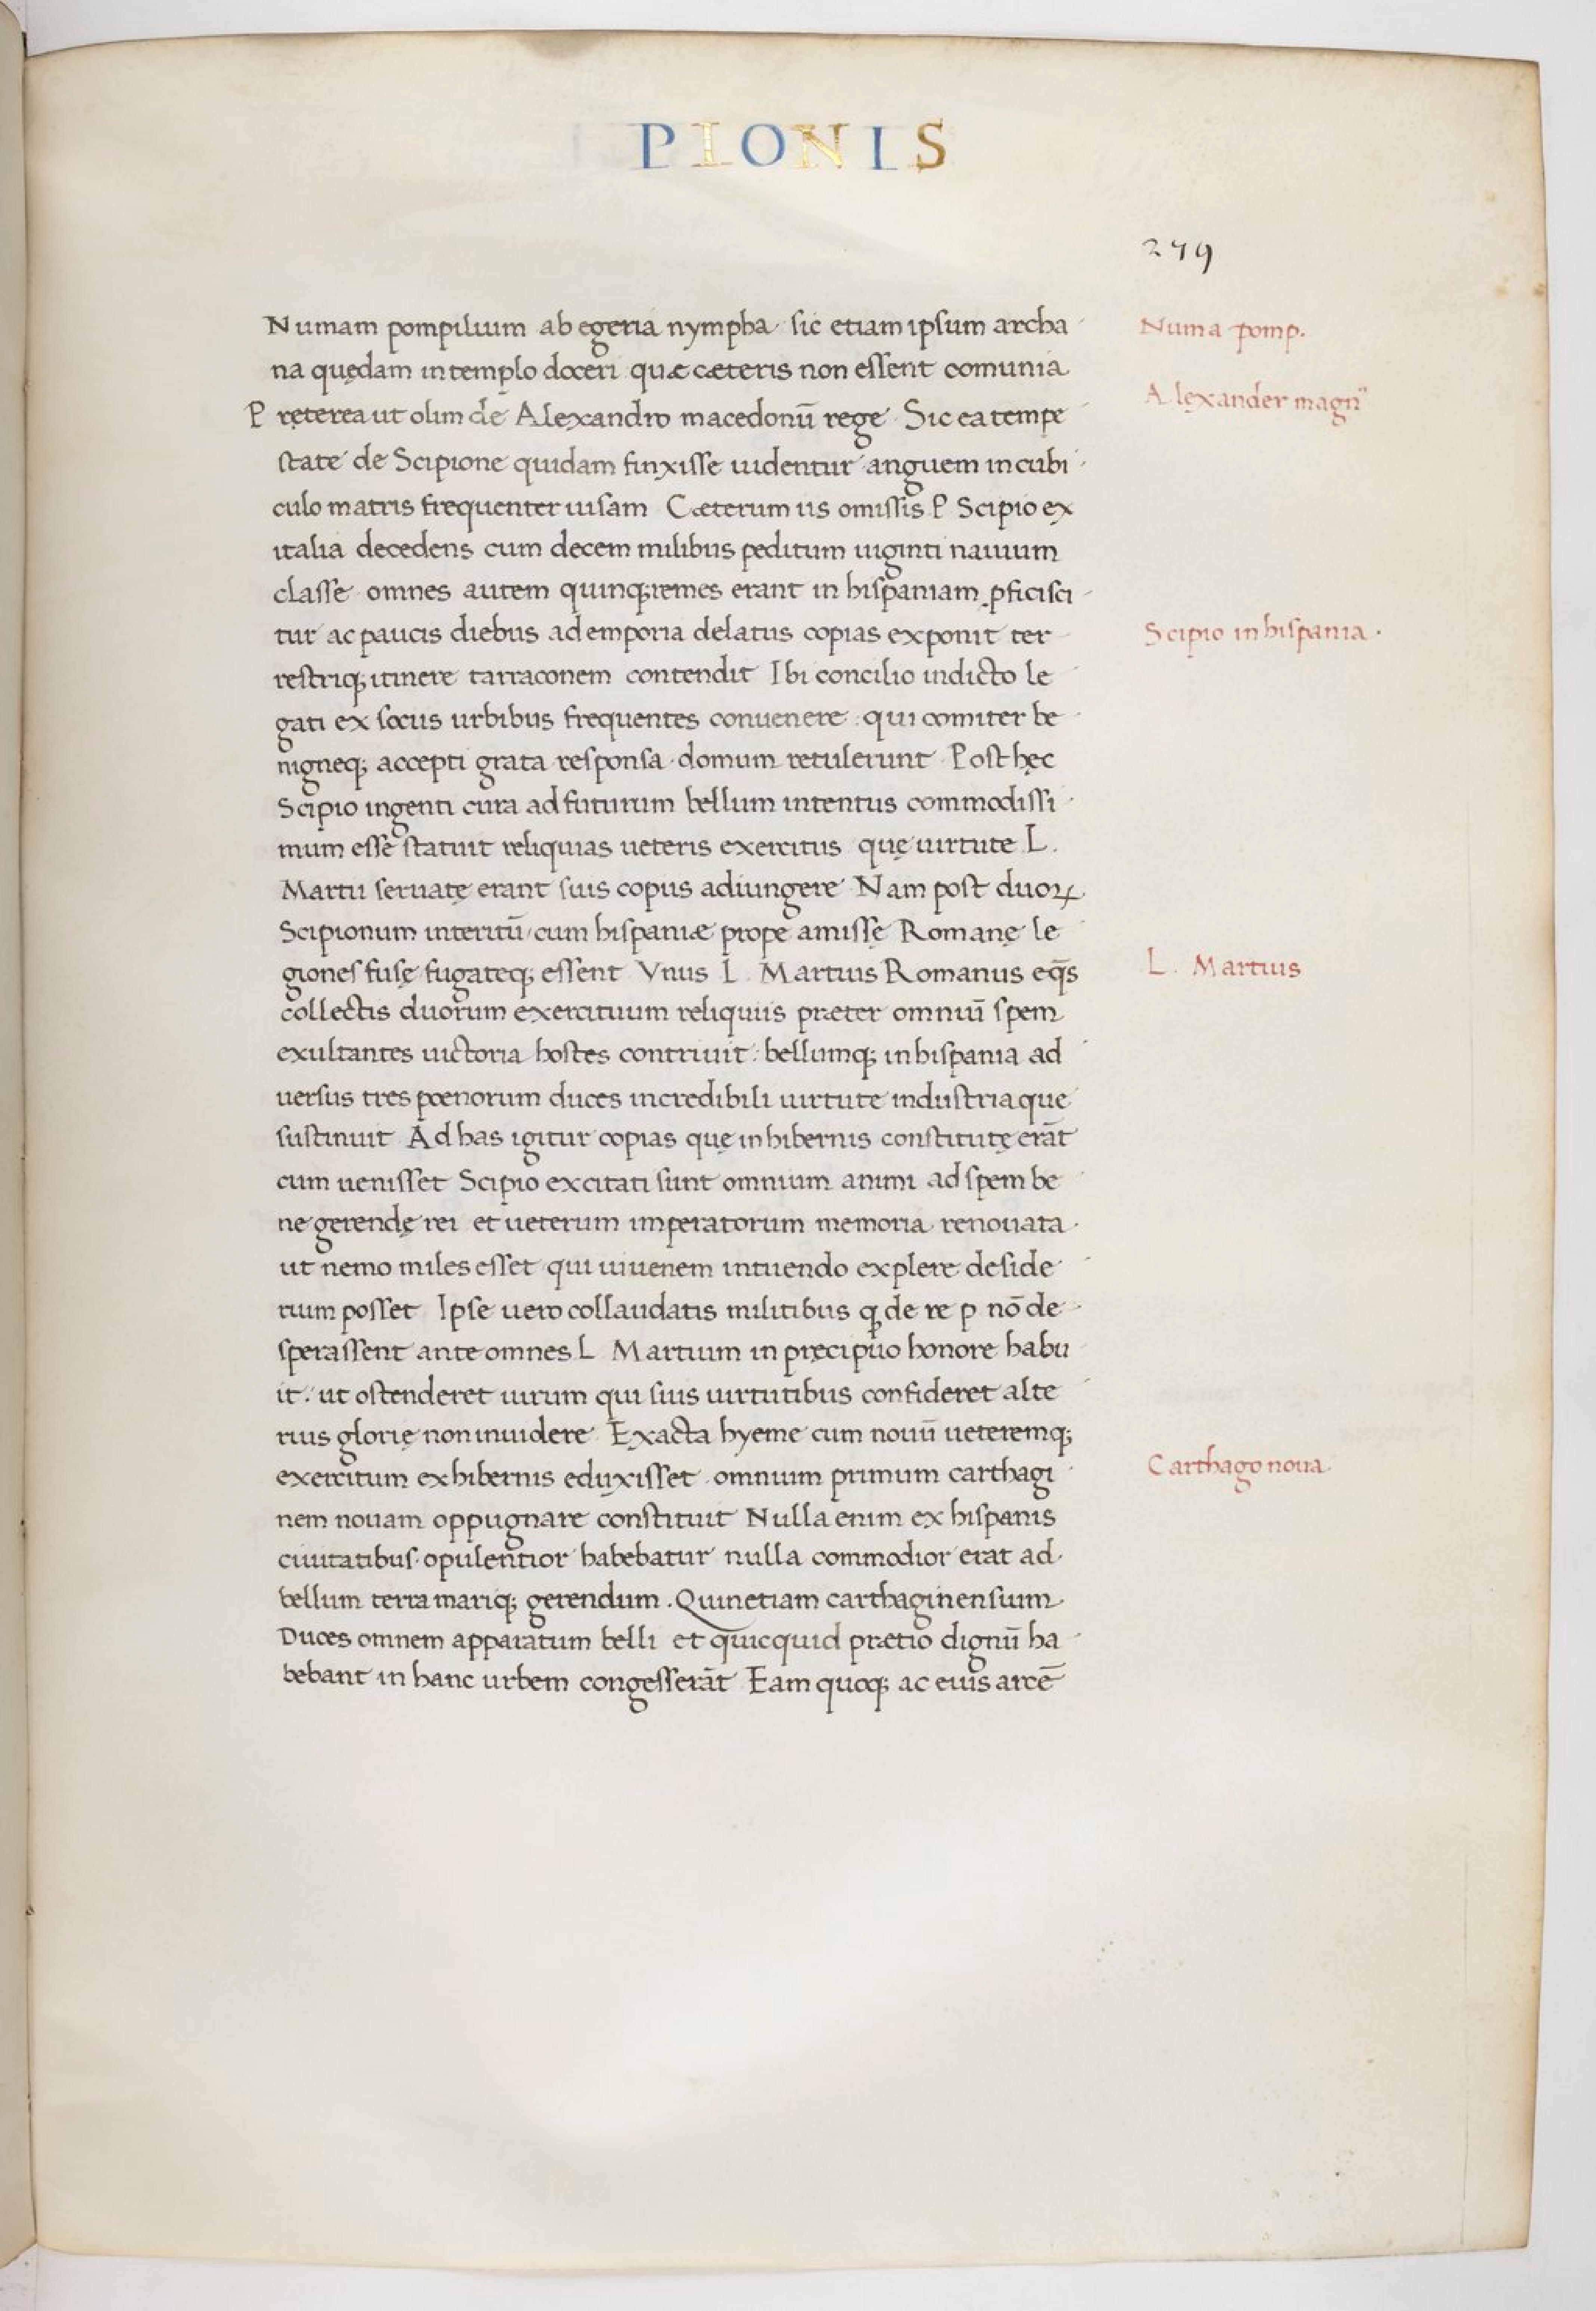 PIONIS
249
Numam pompilium ab egeria nympha sic etiam ipsum archa
Numa pomp.
na quędam in templo doceri quæ cæteris non essent comunia
Alexander magn⁹
Pręterea ut olim de Alexandro macedonū rege Sic ea tempe
state de Scipione quidam finxisse uidentur anguem in cubi
culo matris frequenter uisam Cæterum iis omissis P Scipio ex
italia decedens cum decem milibus peditum uiginti nauium
classe omnes autem quinq;remes erant in hispaniam ꝓficisci
tur ac paucis diebus ad emporia delatus copias exponit ter
Scipio in hispania.
restriq; itinere tarraconem contendit Ibi concilio indicto le
gati ex sociis urbibus frequentes conuenere : qui comiter be
nigneq; accepti grata responsa domum retulerunt Post hęc
Scipio ingenti cura ad futurum bellum intentus commodissi
mum esse statuit reliquias ueteris exercitus quę uirtute L.
Martii seruatę erant suis copiis adiungere Nam post duoꝝ
Scipionum interitū cum hispaniæ prope amissę Romanę le
giones fusę fugateq; essent Vnus L. Martius Romanus eq̄s
L. Martius
collectis duorum exercituum reliquiis præter omniū spem
exultantes uictoria hostes contriuit : bellumq; in hispania ad
uersus tres pœnorum duces incredibili uirtute industriaque
sustinuit Ad has igitur copias quę in hibernis constitutę erāt
cum uenisset Scipio excitati sunt omnium animi ad spem be
ne gerendę rei et ueterum imperatorum memoria renouata
ut nemo miles esset qui iuuenem intuendo explere deside
rium posset Ipse uero collaudatis militibus ꝙ de re p nō de
sperassent ante omnes L Martium in pręcipuo honore habu
it : ut ostenderet uirum qui suis uirtutibus confideret alte
rius glorię non inuidere Exacta hyeme cum nouū ueteremq;
exercitum ex hibernis eduxisset omnium primum carthagi
Carthago noua
nem nouam oppugnare constituit Nulla enim ex hispanis
ciuitatibus opulentior habebatur nulla commodior erat ad
bellum terra mariq; gerendum . Quinetiam carthaginensium
Duces omnem apparatum belli et quicquid prætio dignū ha
bebant in hanc urbem congesserāt Eam quoq; ac eius arcē